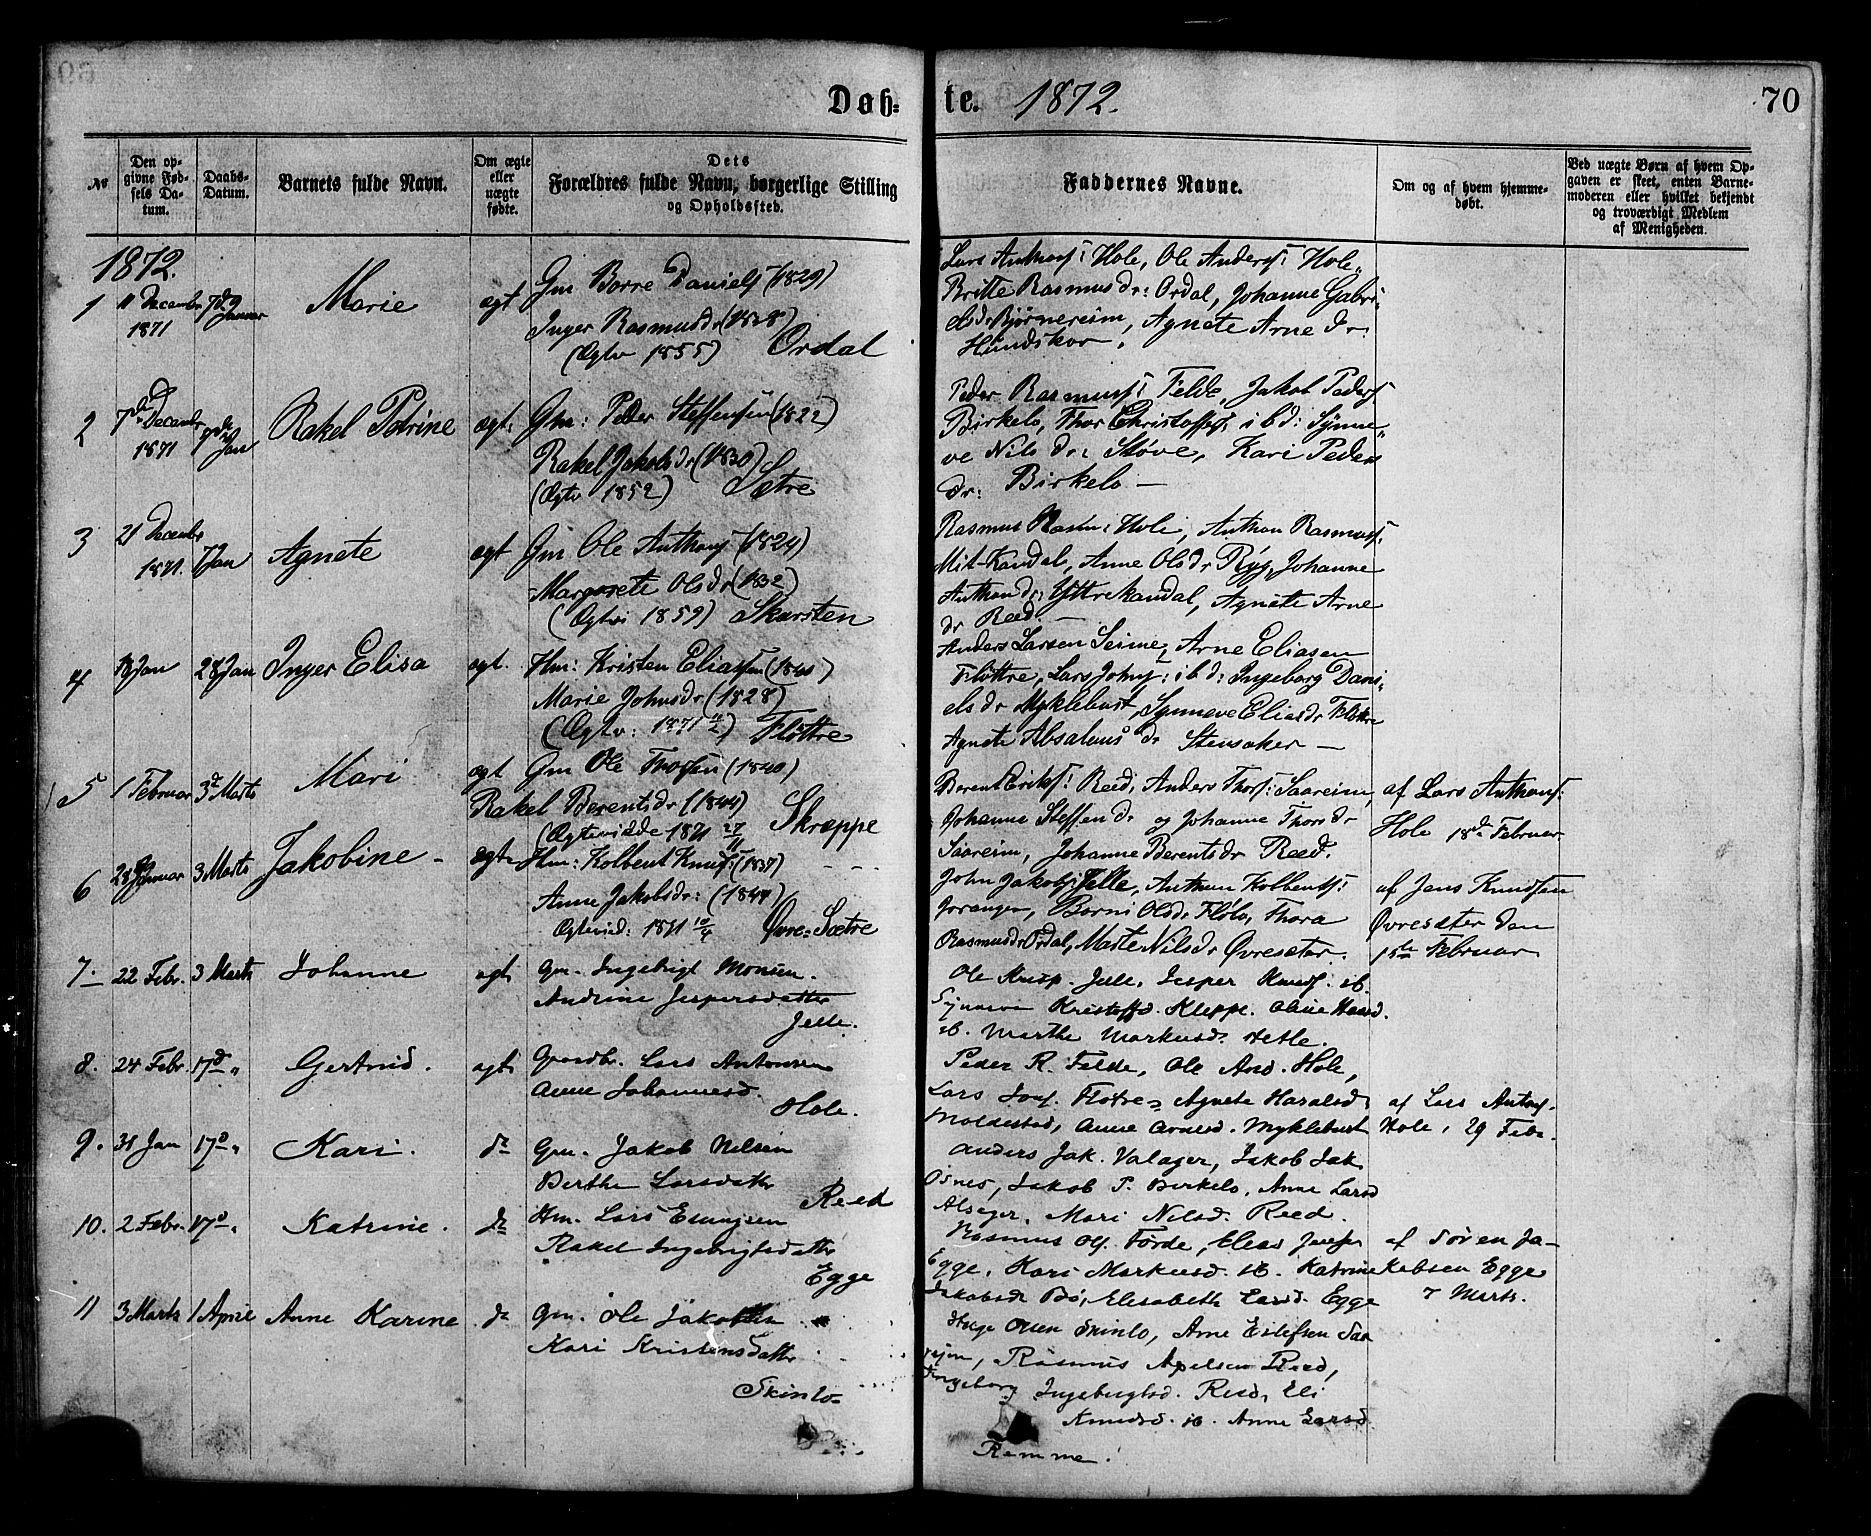 Døb-te. 1872. 70
№
Den opgivne Fødsels Datum.
Daabs-Datum.
Barnets fulde Navn.
Om ægte eller uægte fødte.
Dets Forældres fulde Navn, borgerlige Stilling og Opholdssted.
Faddernes Navne.
Om og af hvem hjemmedøbt.
Ved uægte Børn af hvem Opgaven er skeet, enten Barnemoderen eller hvilket bekjendt og troværdigt Medlem af Menigheden.
1872.
1 11 December 1871 7de Januar Marie ægt Gm Børre Daniels (1829)
Inger Rasmusdr (1828)
(Ægtv 1855) Ordal
Lars Anthons: Hole, Ole Anders: Hole,
Britte Rasmusdr: Ordal, Johanne Gabri-
elsdr Bjørnereim, Agnete Arne dr
Hundskor.
2 7de December 1871 7de Jan Rakel Petrine ægt: Gm: Peder Steffensen (1822)
Rakel Jakobsdr (1830)
(Ægtv 1852) Sætre
Peder Rasmuss: Felde, Jakob Peders
Birkelo, Thor Christoffers: ibd: Synne-
ve Nilsdr: Støve, Kari Peders
dr: Birkelo —
3 21 Decembr 1871. 7 Jan Agnete ægt Gm Ole Anthons (1824)
Margrete Olsdr (1832)
(Ægtv 1859) Skarsten
Rasmus Rasm: Hole, Anthon Rasmuss:
Mit-Kandal, Anne Olsdr Ryg, Johanne
Anthondr: Yttrekandal, Agnete Arne
dr Reed. —
4 18 Jan 28 Jan Inger Elisa ægt. Hm: Kristen Eliassen
Marie Johnsdr (1828)
(Ægtv: 1871) Fløttre
Anders Larsen Seime, Arne Eliasen
Fløttre, Lars Johns: ibd: Ingeborg Dani-
elsdr Myklebust, Synneve Eliasdr Fløttre
Agnete Absalons dr Stensaker —
5 1 Februar 3de Marts Mari ægt Gm Ole Thorsen (1840)
Rakel Berentsdr (1844)
(Ægtevidde 1871 27/11 Skreppe
Berent Eriks: Reed, Anders Thors: Saareim,
Johanne Steffendr og Johanne Thorsdr
Saareim, Johanne Berentsdr Reed.
af Lars Anthons:
Hole 18de Februar
6 28 Januar 3 Marts Jakobine ægte Hm: Kolbent Knuts: (1837)
Anne Jakobsdr: (1847)
Ægtevied: 1871 10/4 Øvre-Sætre
John Jakobs: Jelle, Anthon Kolbents:
Joranger, Borni Olsdr Fløto, Thora
Rasmusdr Ordal, Marte Nilsdr Øvresæter.
af Jens Knudsen
Øvresæter den
15de Februar
7. 22 Febr. 3 Marts Johanne ægt. Gm. Ingebrigt Monsen.
Andrine Jespersdatter
Jelle.
Ole Jelle, Jesper Knuds. ib.
Synneve Kristoffd. Kleppe. Oline Hansd.
ib. Marthe Markusd. Hetle.
8. 24 Febr. 17de Gertrud. ægt. Gaardbr. Lars Antonsen
Anne Johannesd.
Hole.
Peder R. Felde, Ole And. Hole,
Lars Fløtre, Agnete Haralsd.
Moldestad, Anne Arnesd. Myklebust
af Lars Antons.
Hole, 29 Febr.
9. 31 Jan 17de Kari. do Gm. Jakob Nilsen
Berthe Larsdatter
Reed
Anders Jak. Valager, Jakob Jak
Osnes, Jakob P. Birkelo. Anne Larsd
Alsager. Mari Nilsd. Reed.
10. 2 Febr. 17de Katrine. do Hm. Lars
Rakel Ingebrigtsdatter
Egge
Rasmus Ols. Førde, Elias
Egge, Kari Markusd. ib. Katrine
Jakobsd. Bø, Elisabeth Larsd. Egge
af Søren Ja-
kobsen Egge
7 Marts.
11 3 Marts 1 April Anne Karine do Gm. Ole Jakobsen
Kari Kristensdatter
Skinlo
Olsen Skinlo, Arne Saa-
reim, Rasmus Apelsen Reed,
Ingeborg Ingebrigtsd. Reed, Eli
Knudsd. ib. Anne Larsd.
Remme.